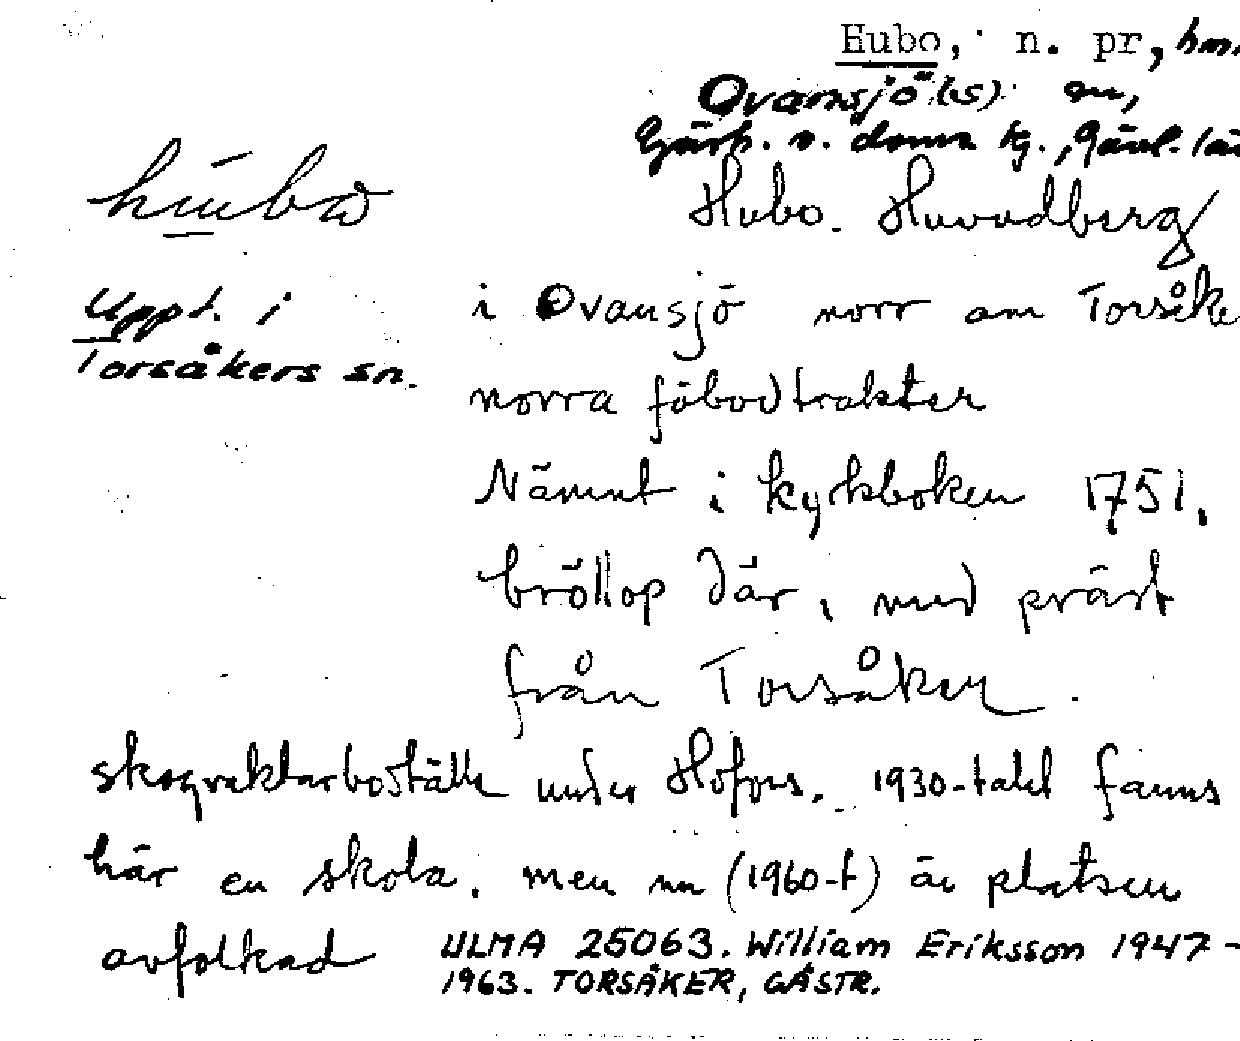 Hubo, n. pr, hm.
Ovansjö (s) sn,
Gästr. v. doms tg., Gävl. län
hūbo
Hubo. Huvudberg
Uppt. i
i Ovansjö norr om Torsåke
Torsåkers sn.
norra fäbodtrakter
Nämnt i kyrkboken 1751,
bröllop där, med präst
från Torsåker.
skogvaktarboställe under Hofors. 1930-talet fanns
här en skola, men nu (1960-t) är platsen
avfolkad
ULMA 25063. William Eriksson 1947-
1963. TORSÅKER, GÄSTR.